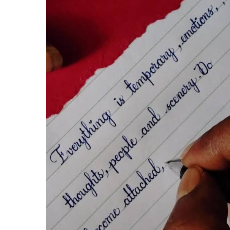 Everything is temporary, emotions,
thoughts, people and scenery. Do
become attached,